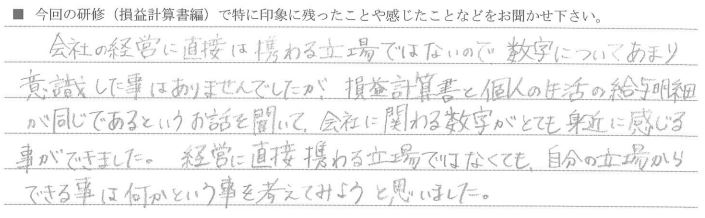 ■ 今回の研修（損益計算書編）で特に印象に残ったことや感じたことなどをお聞かせ下さい。
会社の経営に直接は携わる立場ではないので、数字についてあまり
意識した事はありませんでしたが、損益計算書と個人の生活の給与明細
が同じであるというお話を聞いて、会社に関わる数字がとても身近に感じる
事ができました。経営に直接携わる立場ではなくても、自分の立場から
できる事は何かという事を考えてみようと思いました。